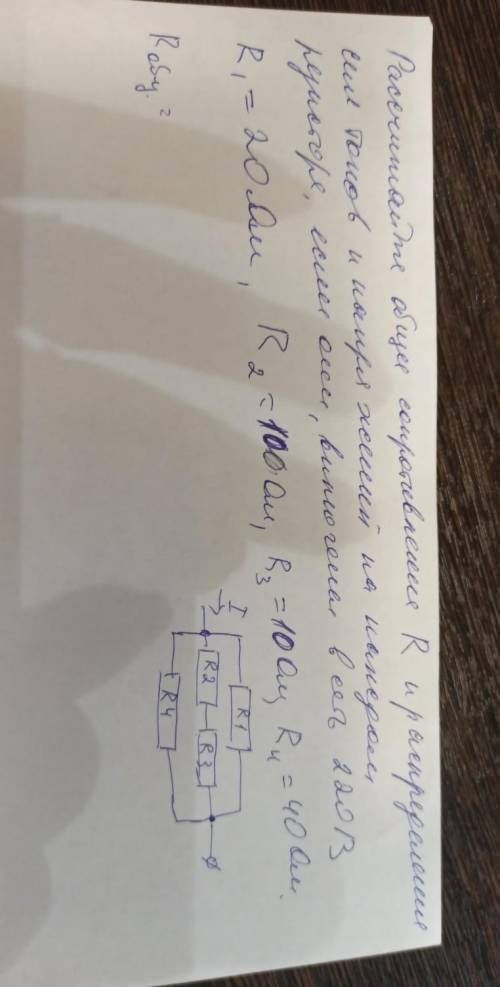 Рассчитайте общее сопротивление R и распределение
сил токов и напряжений на каждом
резисторе, если они, включенная в сеть 220 В
R₁ = 20 Ом, R₂ = 100 Ом, R₃ = 10 Ом, R₄ = 40 Ом.
Rобщ. = 
I
R1
R2
R3
R4